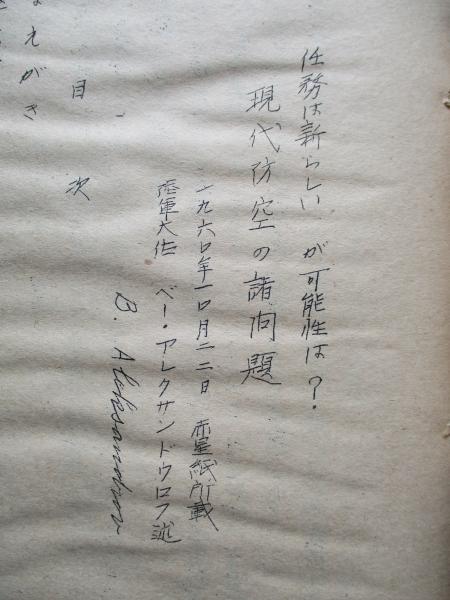 任務は新らしい が可能性は?
現代防空の諸問題
一九六〇年一〇月二二日 赤星紙所載
陸軍大佐 ベー・アレクサンドウロフ述
B. Aleksandrov
目次
えがき